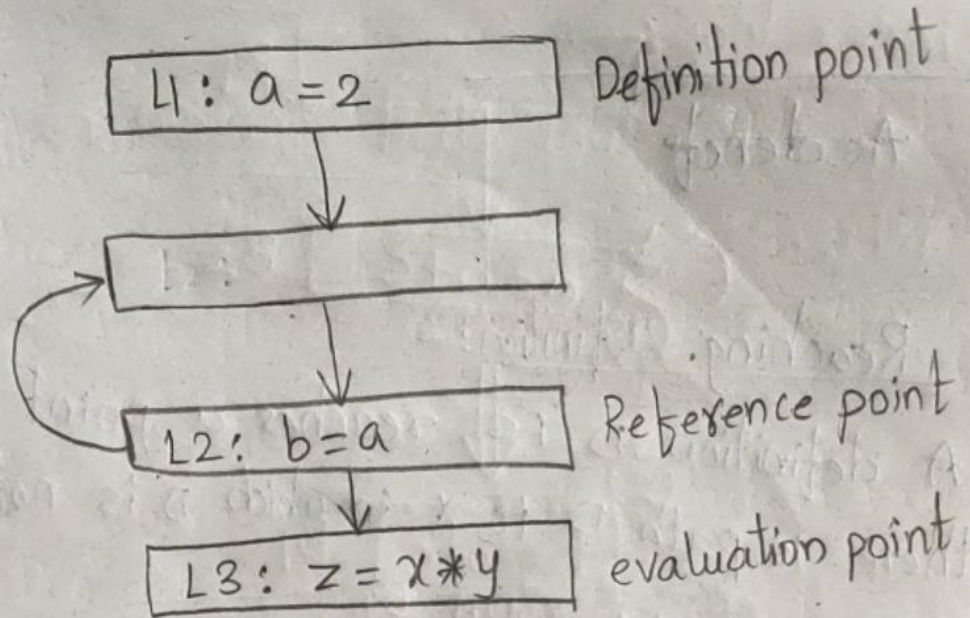 L1: a = 2 Definition point
L2: b = a Reference point
L3: z = x * y evaluation point